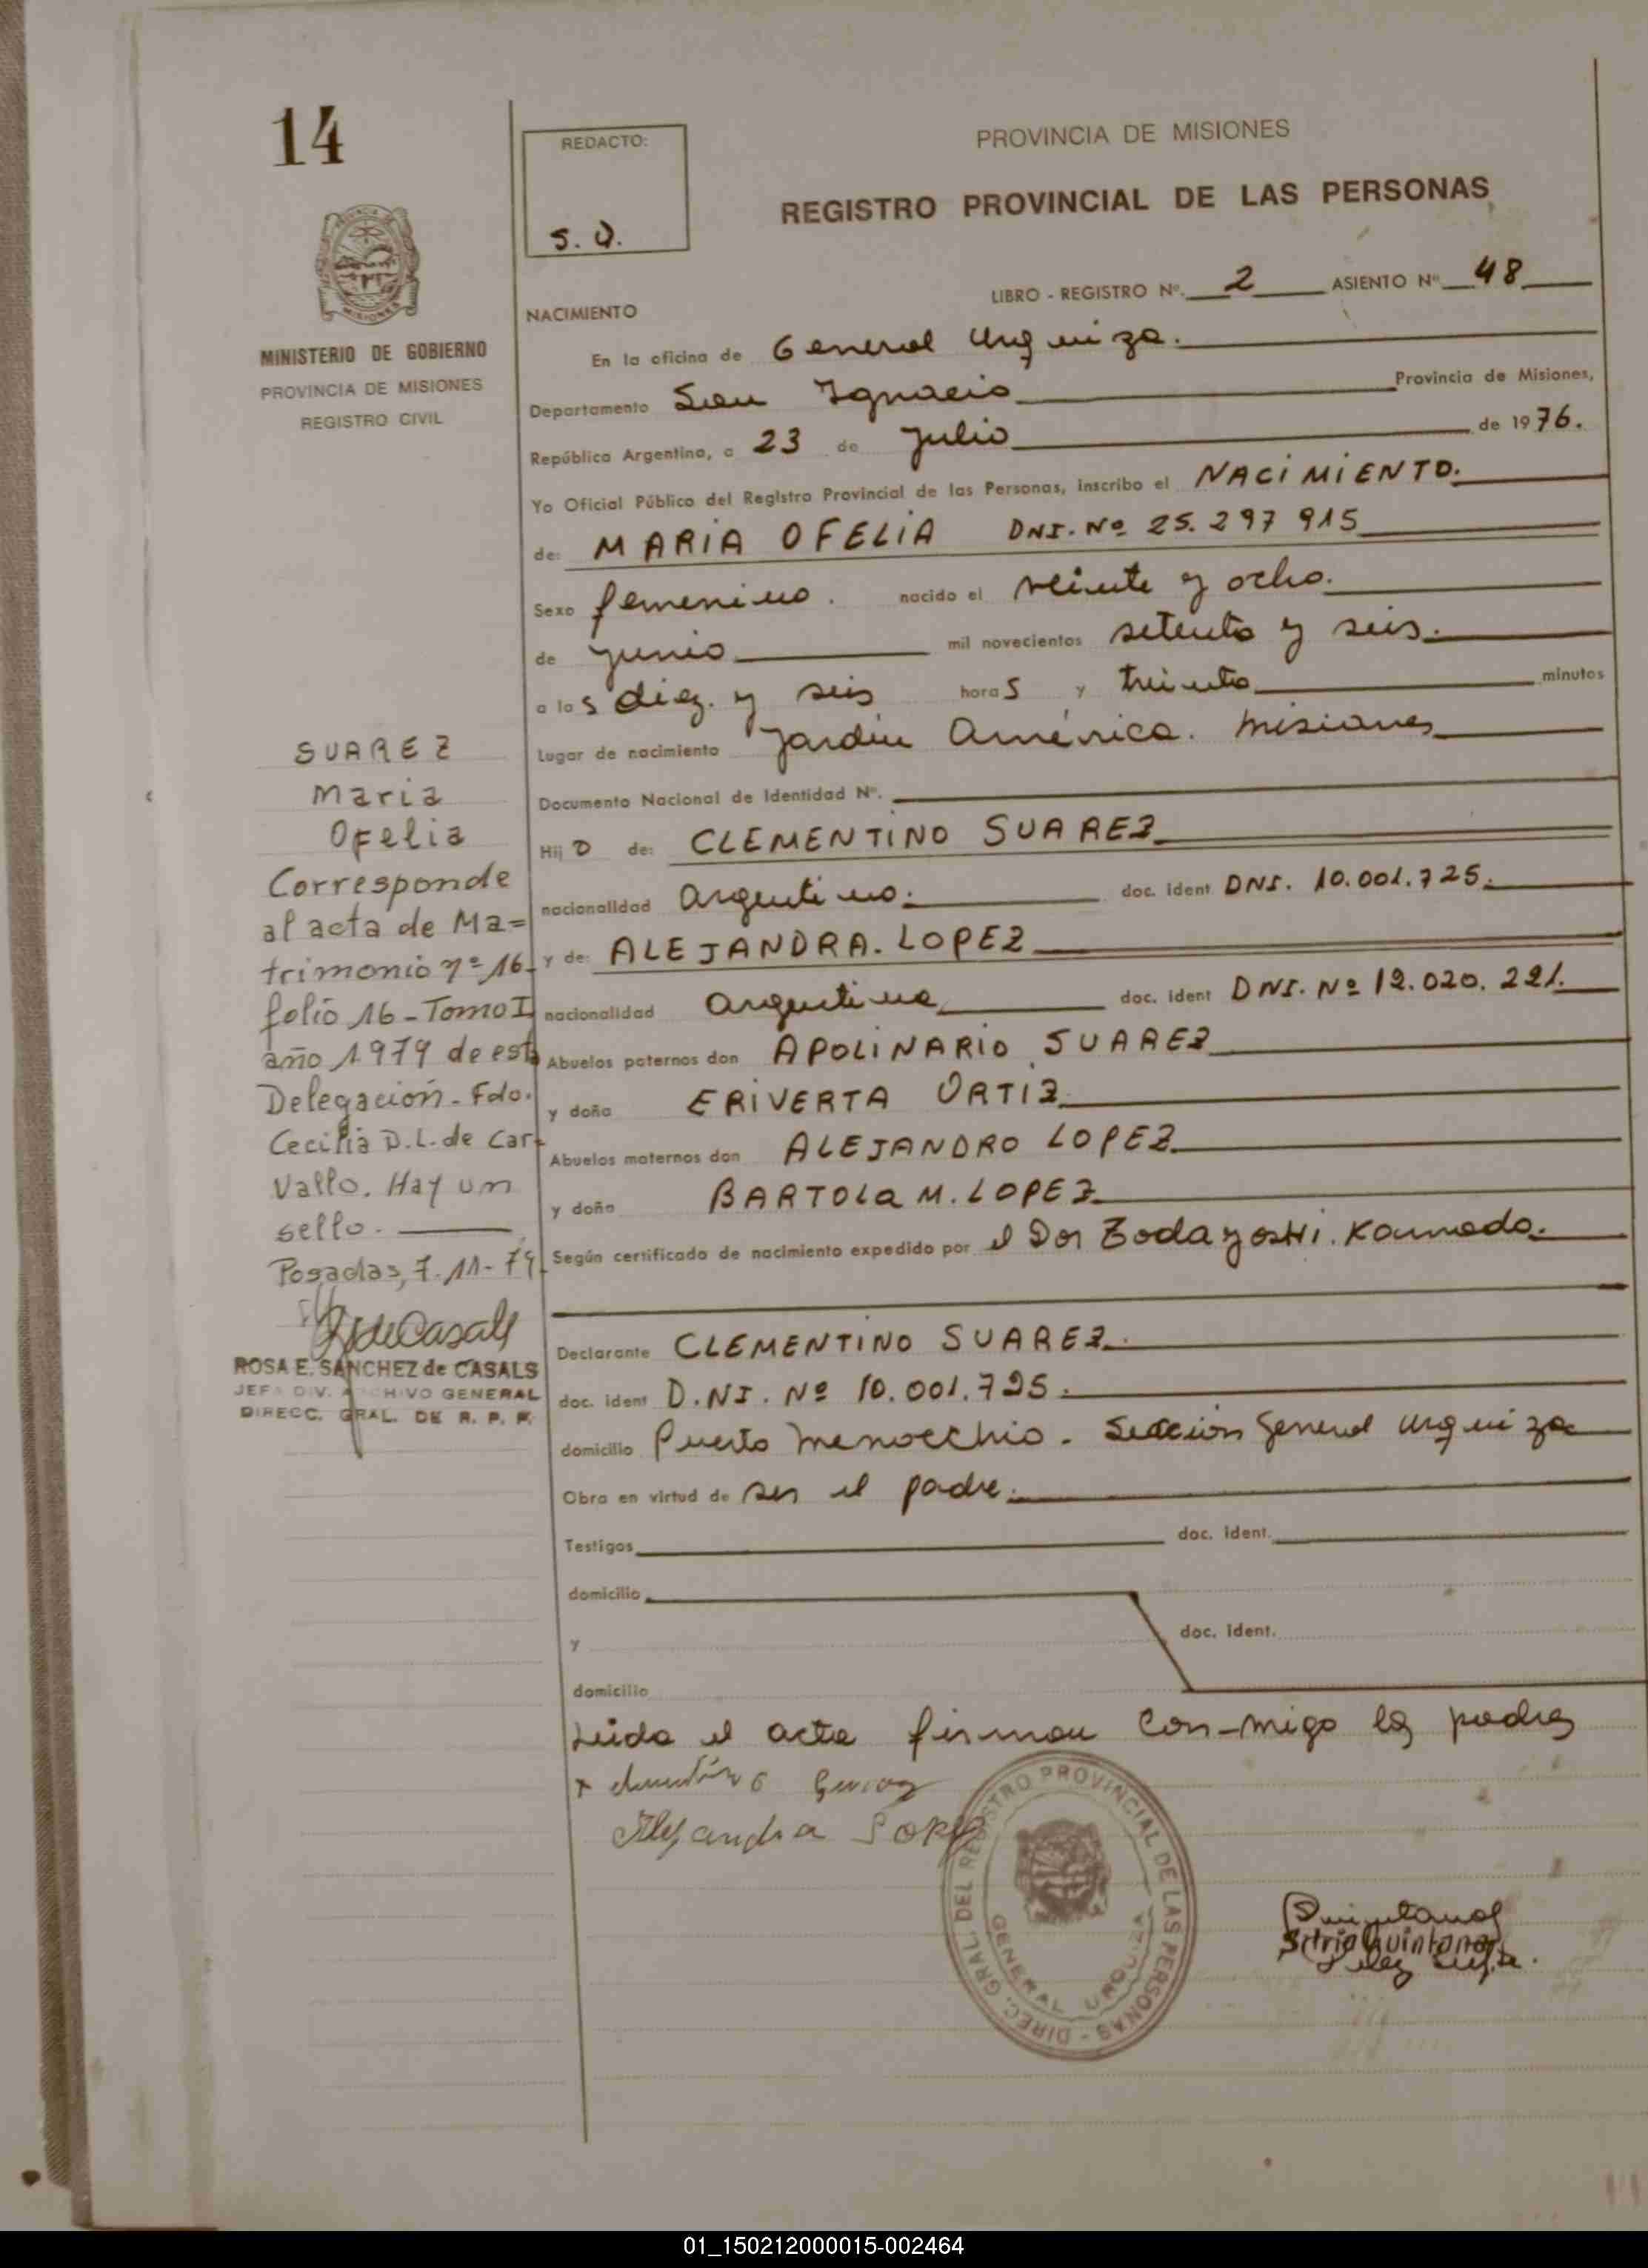 14
REDACTO:
S. Q.
PROVINCIA DE MISIONES
REGISTRO PROVINCIAL DE LAS PERSONAS
LIBRO - REGISTRO Nº. 2 ASIENTO Nº 48
MISIONES
MINISTERIO DE GOBIERNO
PROVINCIA DE MISIONES
REGISTRO CIVIL
NACIMIENTO
En la oficina de General Urquiza.
Departamento San Ignacio Provincia de Misiones,
República Argentina, a 23 de Julio de 1976.
Yo Oficial Público del Registro Provincial de las Personas, inscribo el NACIMIENTO.
de: MARIA OFELIA DNI. Nº 25.297 915
Sexo femenino. nacido el veinte y ocho.
de junio mil novecientos setenta y seis.
a las diez y seis horas y treinta minutos
Lugar de nacimiento Jardín América. Misiones
Documento Nacional de Identidad Nº.
Hij O de: CLEMENTINO SUAREZ
nacionalidad argentino. doc. ident. DNI. 10.001.725.
y de: ALEJANDRA. LOPEZ
nacionalidad argentina doc. ident DNI. Nº 12.020.221.
Abuelos paternos don APOLINARIO SUAREZ
y doña ERIVERTA ORTIZ
Abuelos maternos don ALEJANDRO LOPEZ
y doña BARTOLA M. LOPEZ
Según certificado de nacimiento expedido por el Dor
Declarante CLEMENTINO SUAREZ.
doc. ident D.NI. Nº 10.001.725.
domicilio Puerto Menocchio. Sección General Urquiza
Obra en virtud de ser el padre.
Testigos doc. ident.
domicilio
y doc. ident.
domicilio
Leida el acta firman con-migo los padres
Alejandra Lopez
SUAREZ
Maria
Ofelia
Corresponde
al acta de Ma=
trimonio nº 16
folio 16 - Tomo I
año 1979 de esta
Delegación - Fdo.
Cecilia D.L. de Car-
vallo. Hay un
sello.
Posadas, 7-11-79
ROSA E. SANCHEZ de CASALS
JEFA DIV. ARCHIVO GENERAL
DIRECC. GRAL. DE R. P. P.
DIREC. GRAL. DEL REGISTRO PROVINCIAL DE LAS PERSONAS -
GENERAL URQUIZA
Quintana
01_150212000015-002464